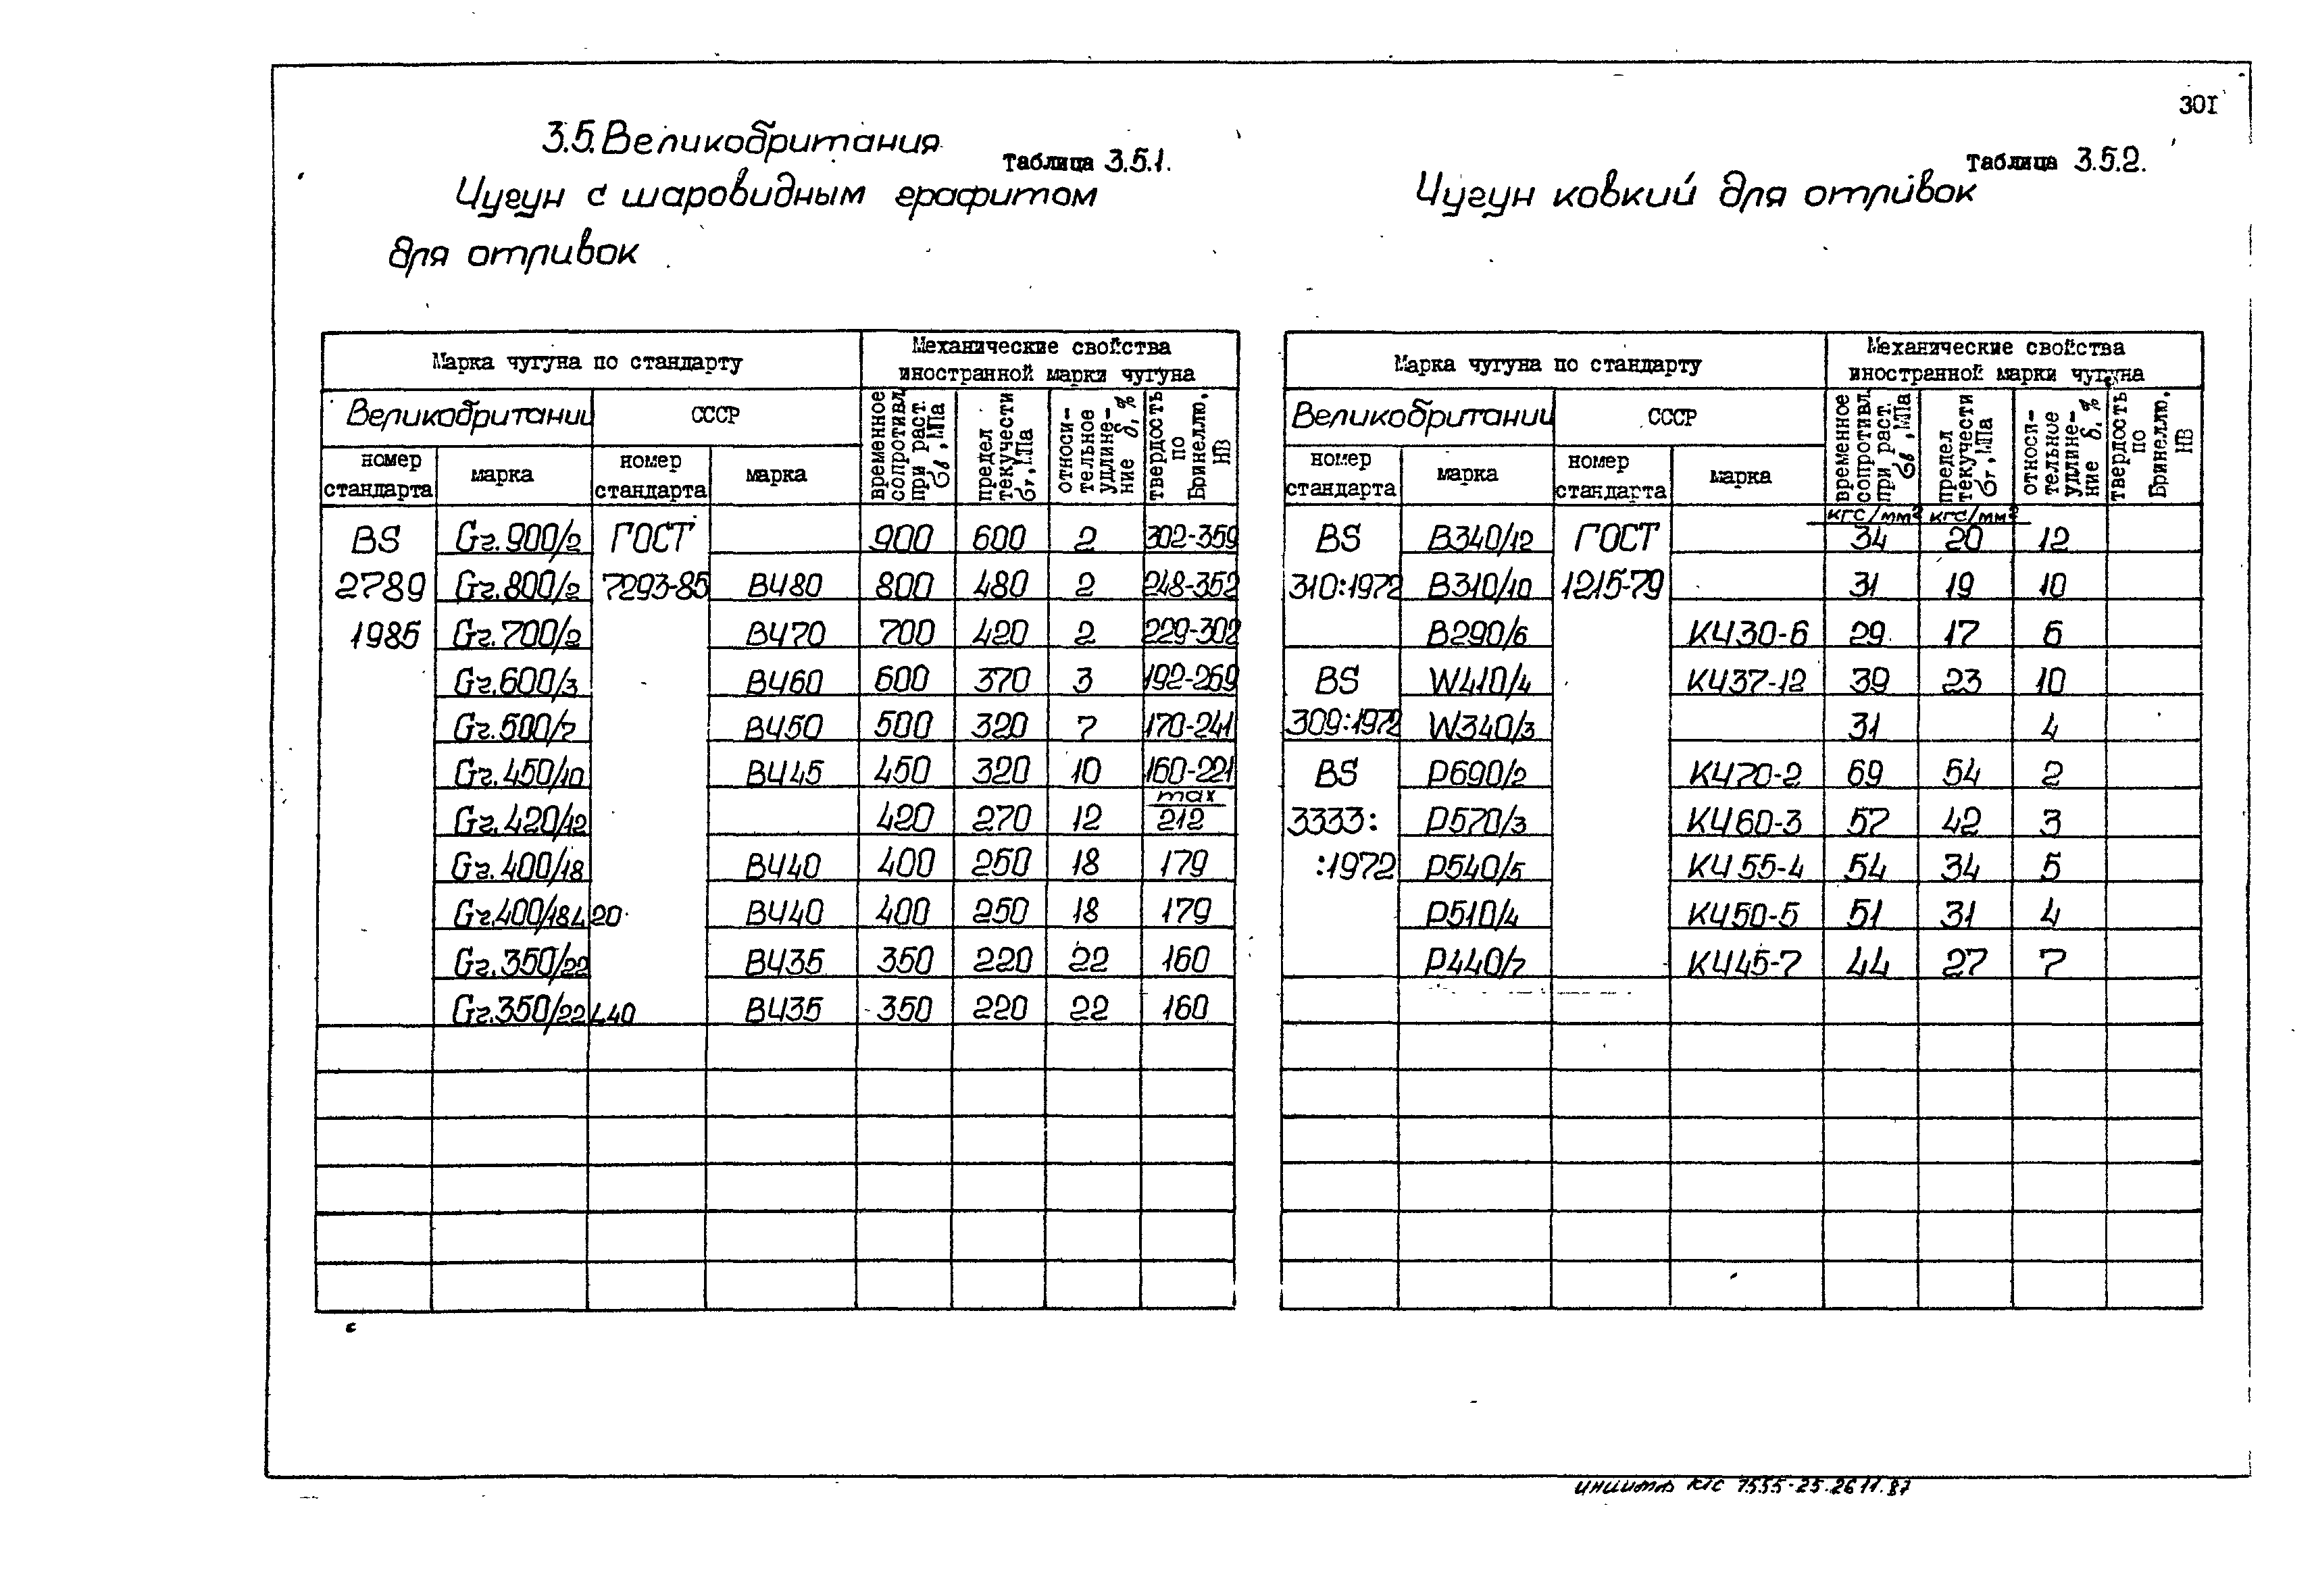 301
3.5. Великобритания
Таблица 3.5.1.
Чугун с шаровидным графитом
для отливок
Марка чугуна по стандарту
Механические свойства
иностранной марки чугуна
Великобритании
СССР
номер
стандарта
марка
номер
стандарта
марка
временное
сопротивл.
при раст.
σв, МПа
предел
текучести
σт, МПа
относи-
тельное
удлине-
ние δ, %
твердость
по
Бринеллю,
НВ
BS Gr.900/2 ГОСТ 900 600 2 302-359
2789 Gr.800/2 7293-85 ВЧ80 800 480 2 248-352
1985 Gr.700/2 ВЧ70 700 420 2 229-302
Gr.600/3 ВЧ60 600 370 3 192-269
Gr.500/7 ВЧ50 500 320 7 170-241
Gr.450/10 ВЧ45 450 320 10 160-221
Gr.420/12 420 270 12 max 212
Gr.400/18 ВЧ40 400 250 18 179
Gr.400/18L20 ВЧ40 400 250 18 179
Gr.350/22 ВЧ35 350 220 22 160
Gr.350/22L40 ВЧ35 350 220 22 160
Таблица 3.5.2.
Чугун ковкий для отливок
Марка чугуна по стандарту
Механические свойства
иностранной марки чугуна
Великобритании
СССР
номер
стандарта
марка
номер
стандарта
марка
временное
сопротивл.
при раст.
σв, МПа
предел
текучести
σт, МПа
относи-
тельное
удлине-
ние δ, %
твердость
по
Бринеллю,
НВ
кгс/мм² кгс/мм²
BS B340/12 ГОСТ 34 20 12
310:1972 B310/10 1215-79 31 19 10
B290/6 КЧ30-6 29 17 6
BS W410/4 КЧ37-12 39 23 10
309:1972 W340/3 31 4
BS P690/2 КЧ70-2 69 54 2
3333: P570/3 КЧ60-3 57 42 3
:1972 P540/5 КЧ55-4 54 34 5
P510/4 КЧ50-5 51 31 4
P440/7 КЧ45-7 44 27 7
7555-25.26.11.87